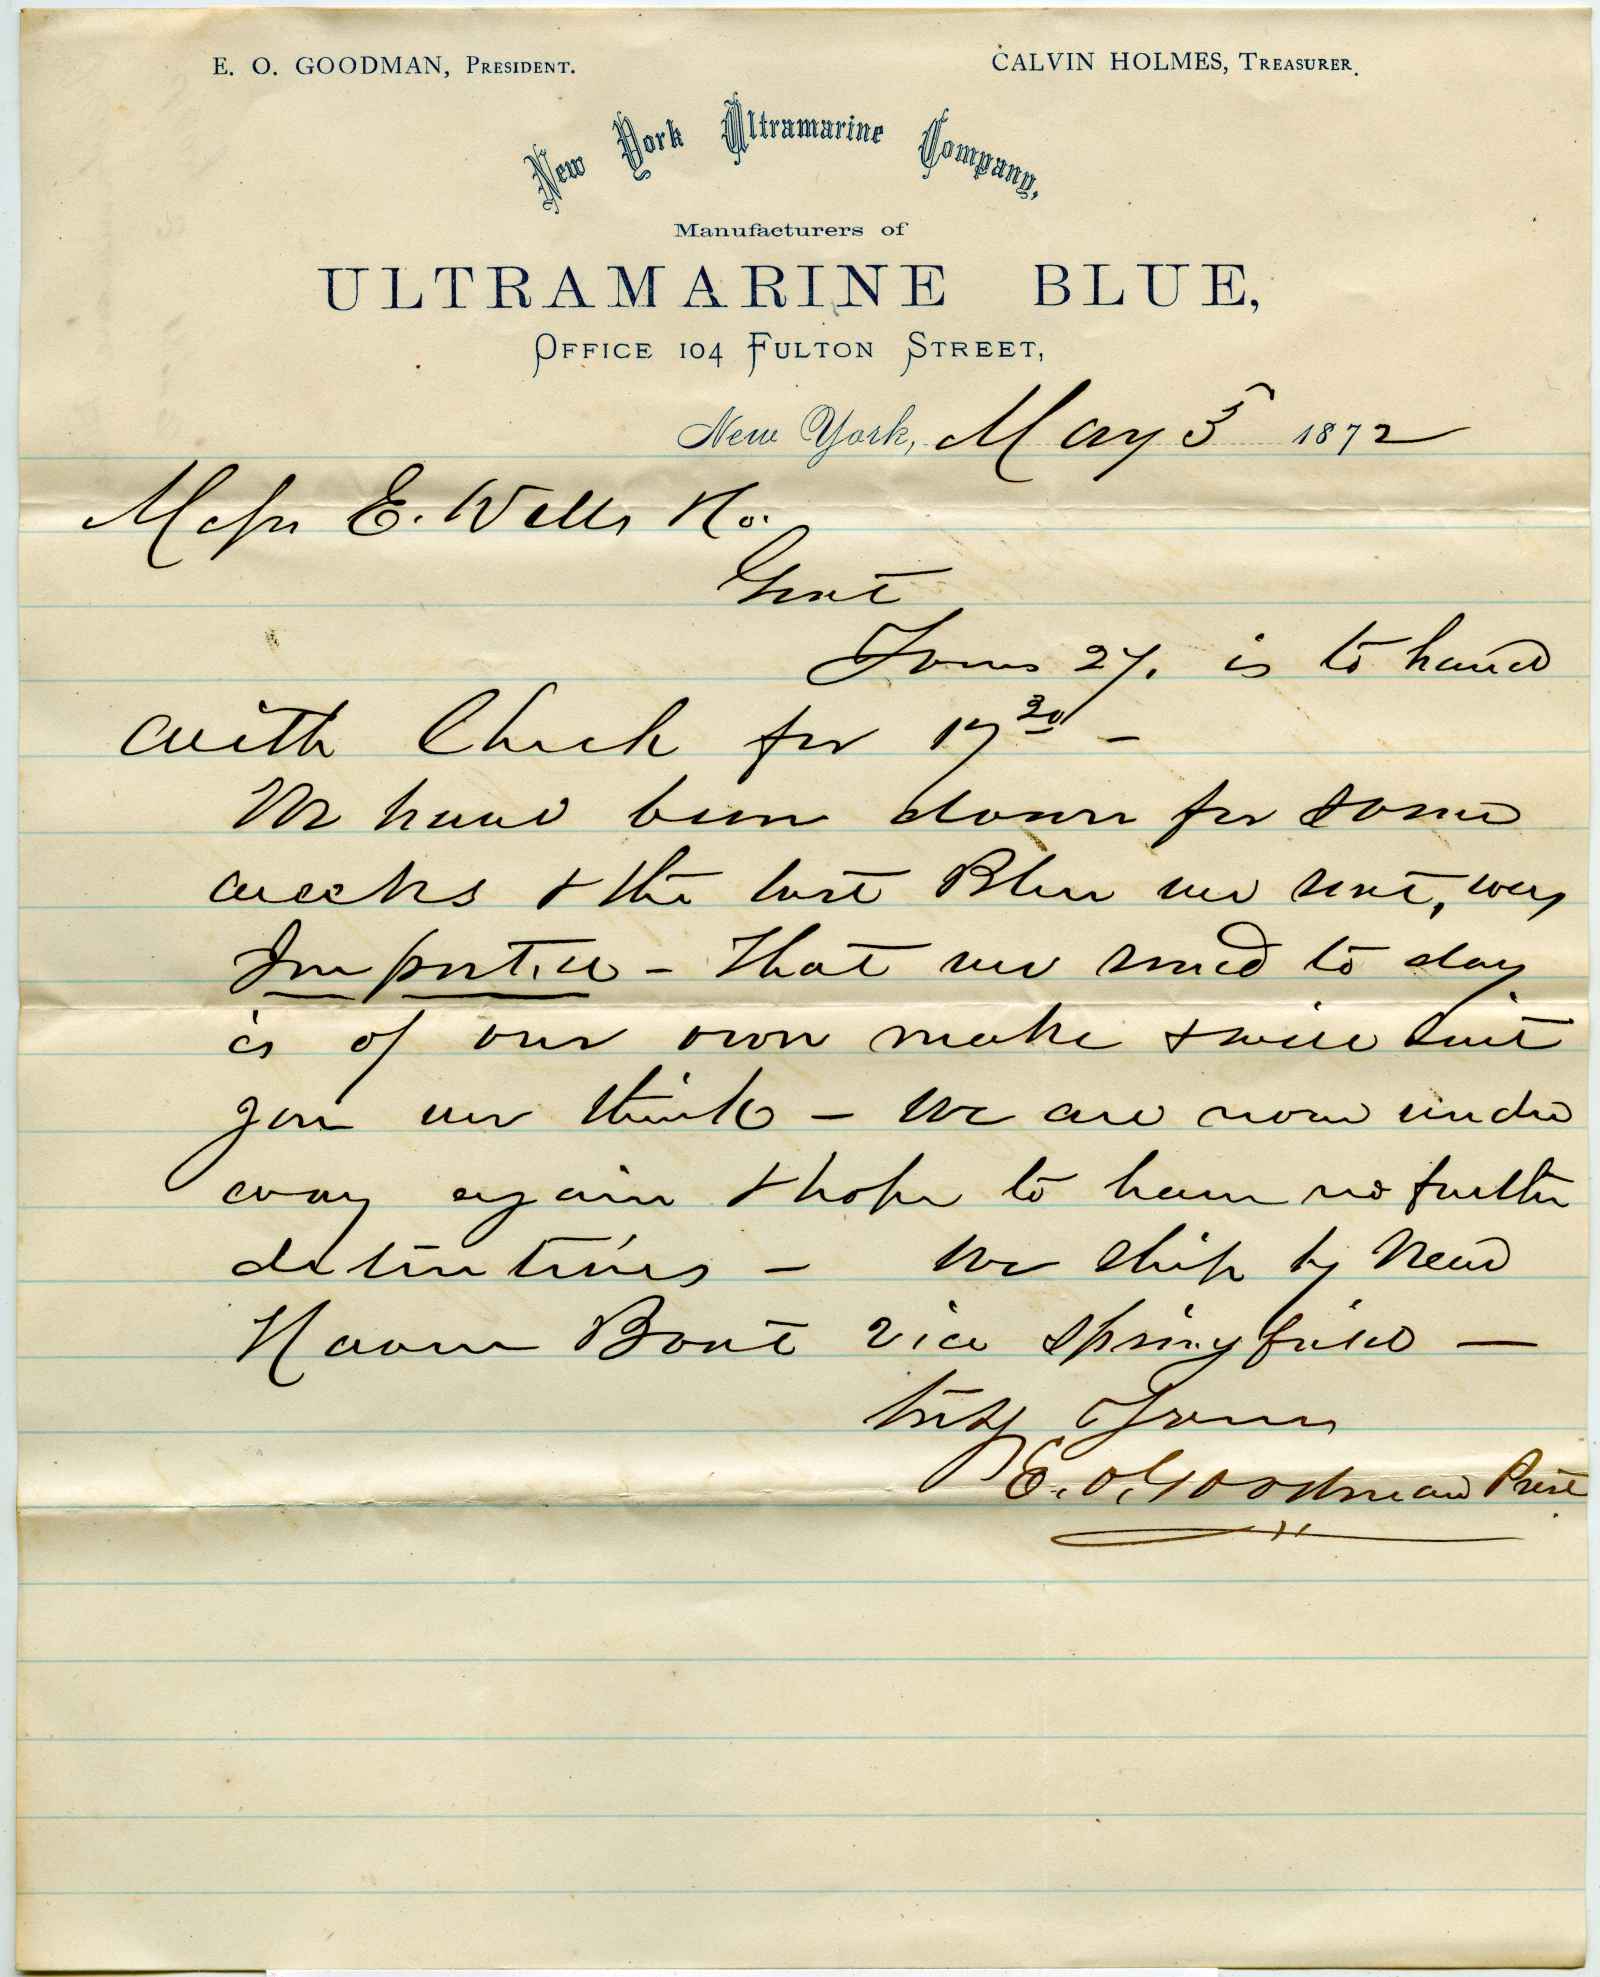 E. O. GOODMAN, PRESIDENT.
CALVIN HOLMES, TREASURER.
New York Ultramarine Company,
Manufacturers of
ULTRAMARINE BLUE,
OFFICE 104 FULTON STREET,
New York, May 5 1872
Messrs E. Wells & Co.
Gent
Yours 27. is to hand
with Check for 17 30 –
We have been down for some
weeks & the last Blue we sent, was
Imported – That we send to day
is of our own make & will suit
you we think – We are now under
way again & hope to have no further
detentions – We ship by New
Haven Boat via Springfield –
truly Yours
E. O. Goodman Prest